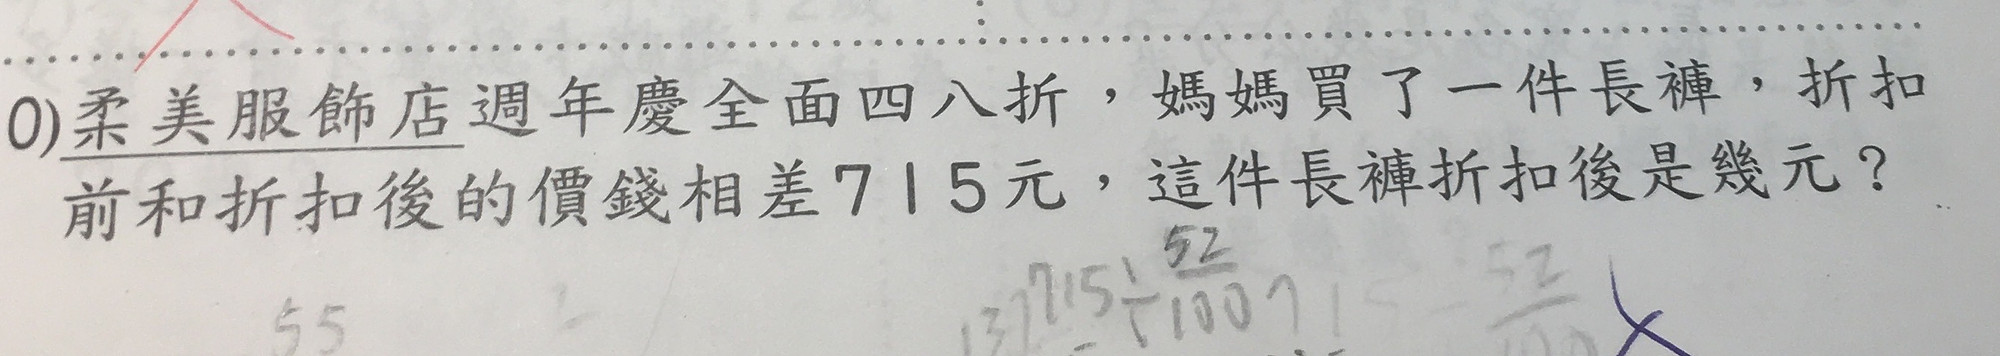 0)柔美服飾店週年慶全面四八折，媽媽買了一件長褲，折扣
前和折扣後的價錢相差715元，這件長褲折扣後是幾元？
715÷52/100
52
55